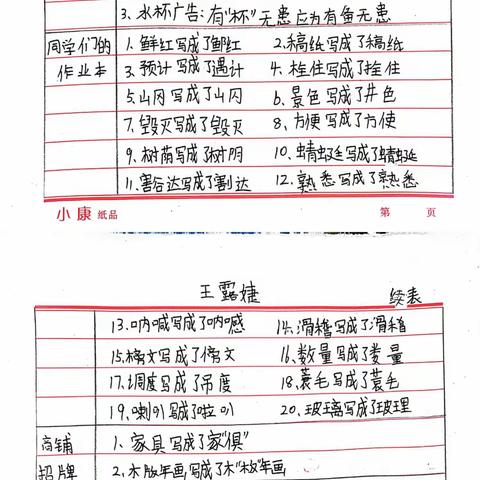 3、水杯广告：有“杯”无患应为有备无患
同学们的 1、鲜红写成了鲜红 2、稿纸写成了稿纸
作业本 3、预计写成了遇计 4、栓住写成了拴住
5、山冈写成了山闪 6、景色写成了井色
7、毁灭写成了毁灭 8、方便写成了方使
9、树荫写成了树阴 10、蜻蜓写成了蜻蜓
11、豁达写成了割达 12、熟悉写成了熟悉
小康纸品 第 页
王露婕 续表
13、呐喊写成了呐喊 14、滑稽写成了滑稽
15、楠文写成了傍文 16、数量写成了娄量
17、调度写成了吊度 18、羡毛写成了羡毛
19、喇叭写成了啦叭 20、玻璃写成了玻理
商铺 1、家具写成了家“俱”
招牌 2、木版年画写成了木“板”年画